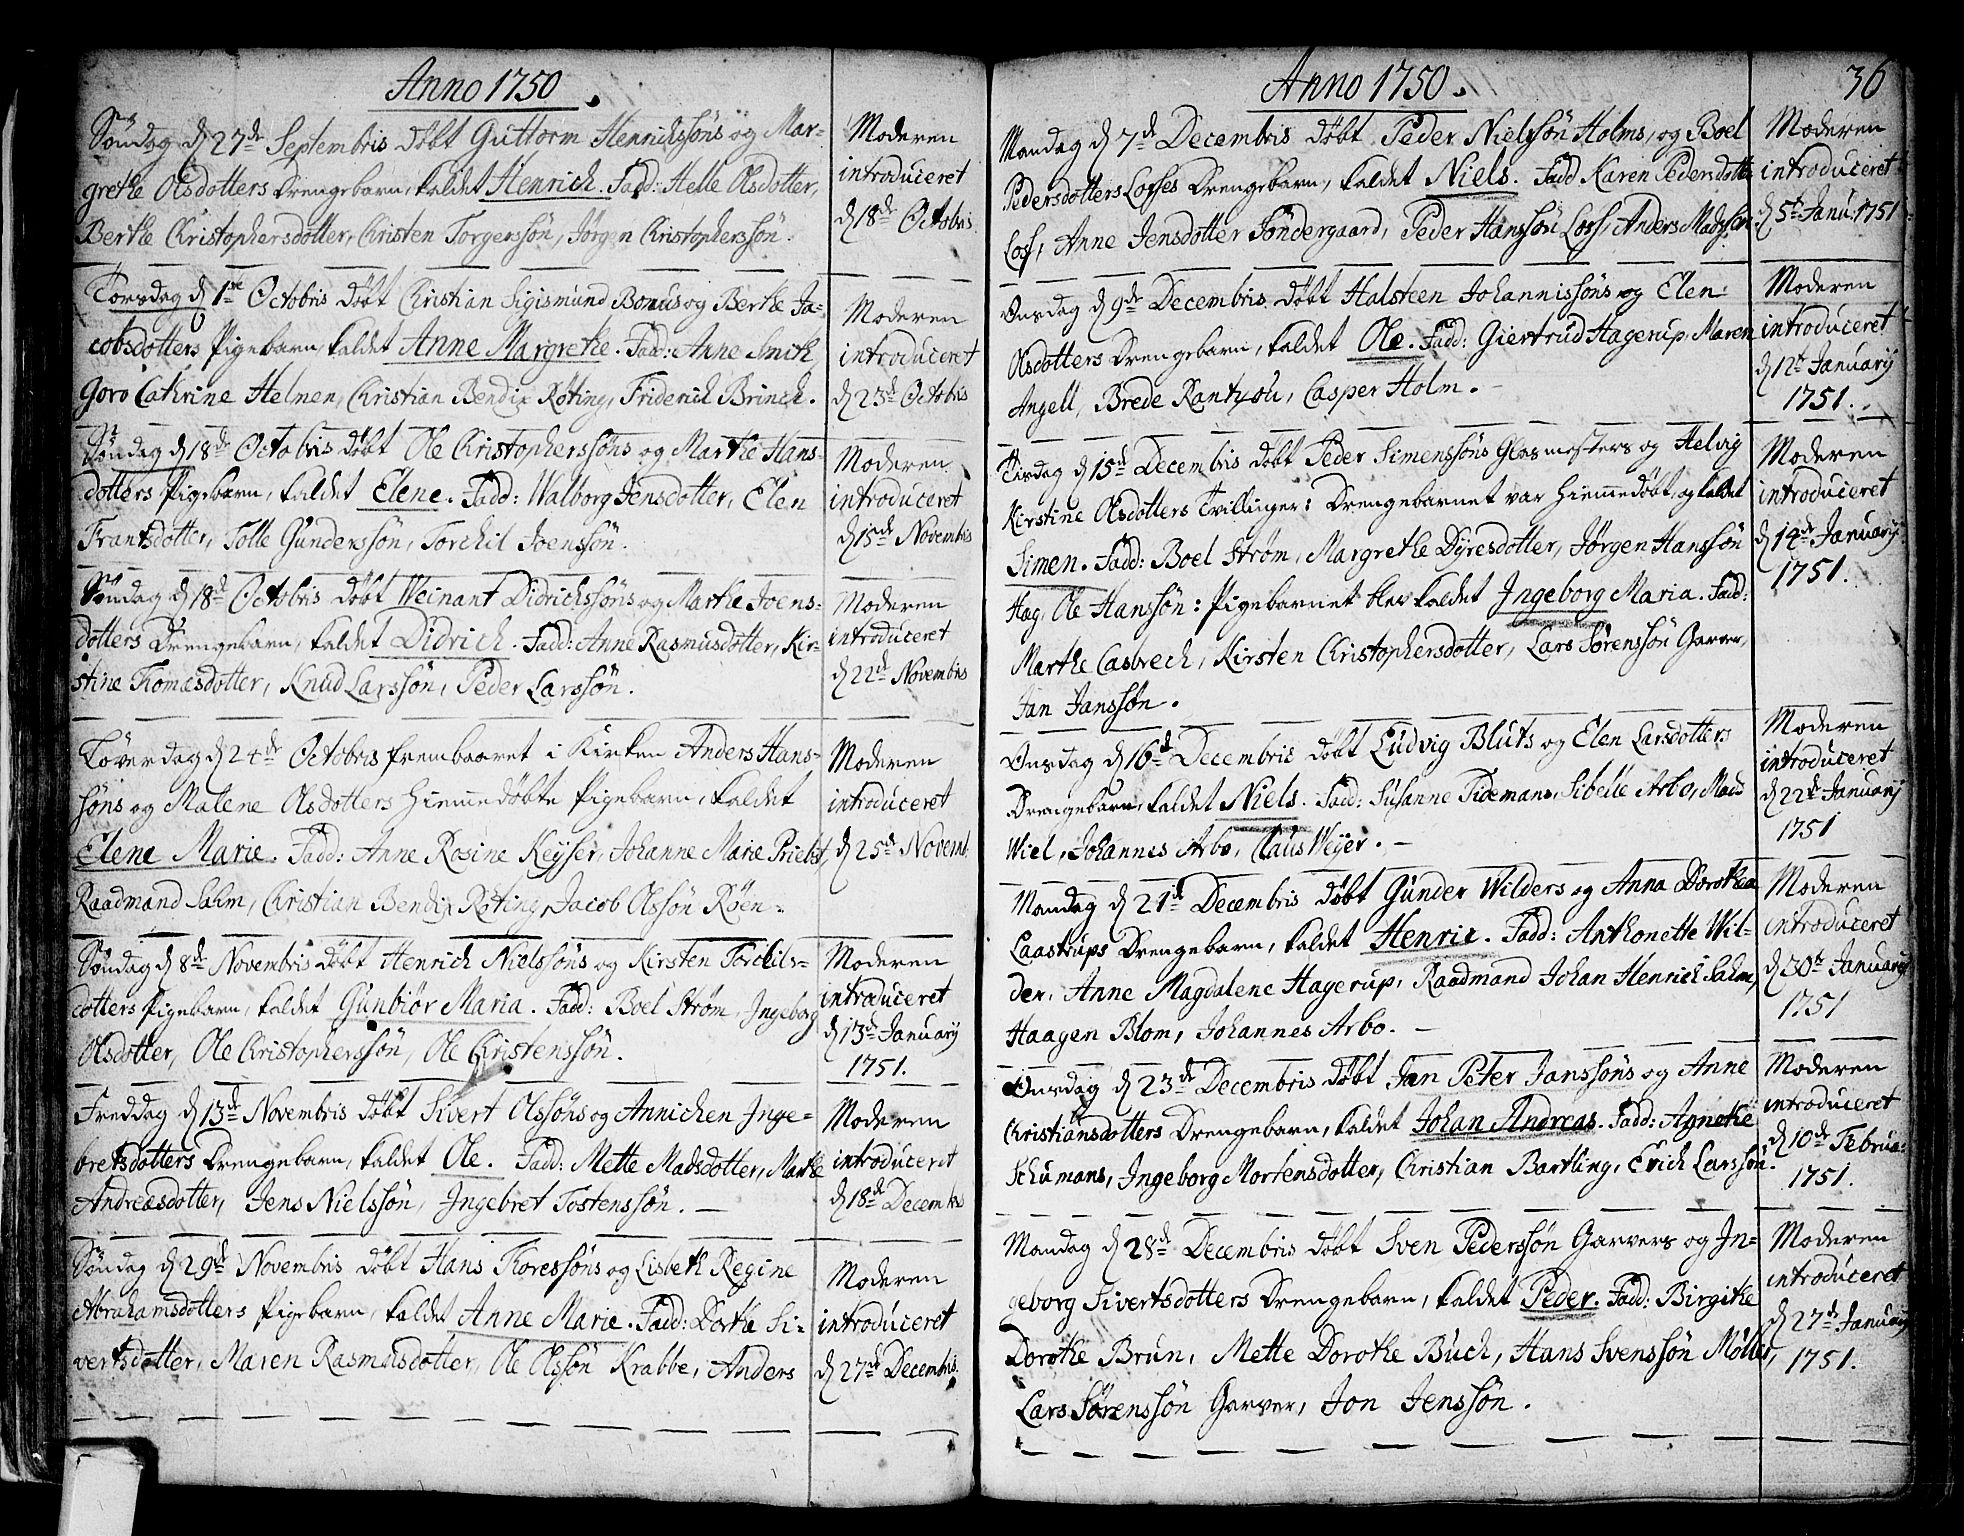 Anno 1750.
Søndag d 27de Septembris døbt Guttorm Henrichsøns og Mar-
grethe Olsdotters Drengebarn, kaldet Henrich. Fadd: Helle Olsdotter,
Berthe Christophersdotter, Christen Torgerssøn, Jørgen Christopherssøn.
Moderen
introduceret
d 18de Octobris
Torsdag d 1ste Octobris døbt Christian Sigismund Bonus og Berthe Ja-
cobsdotters Pigebarn, kaldet Anne Margrethe. Fad: Anne Smith,
Goro Cathrine Helmen, Christian Bendix Røting, Friderich Brinck.
Moderen
introduceret
d 23de Octobris
Søndag d 18de Octobris døbt Ole Christopherssøns og Marthe Hans-
dotters Pigebarn, kaldet Elene. Fadd: Walborg Jensdotter, Elen
Frantsdotter, Tolle Gunderssøn, Torchil Joenssøn.
Moderen
introduceret
d 15de Novembris
Søndag d 18de Octobris døbt Weinant Didrichssøns og Marthe Joens-
dotters Drengebarn, kaldet Didrich. Fadd: Anne Rasmusdotter, Kir-
stine Thomæsdotter, Knud Larssøn, Peder Larssøn.
Moderen
introduceret
d 22de Novembris
Løverdag d 24de Octobris frembaaret i Kirken Anders Hans-
søns og Malene Olsdotters Hiemmedøbte Pigebarn, kaldet
Elene Marie. Fadd: Anne Rosine Keyser, Johanne Marie Priebst,
Raadmand Sahm, Christian Bendix Røting, Jacob Olssøn Røen.
Moderen
introduceret
d 25de Novemb.
Søndag d 8de Novembris døbt Henrich Nielssøns og Kirsten Torchils-
dotters Pigebarn, kaldet Gunbiør Maria. Fadd: Boel Strøm, Ingeborg
Olsdotter, Ole Christopherssøn, Ole Christenssøn.
Moderen
introduceret
d 13de January
1751.
Freddag d 13de Novembris døbt Sivert Olssøns og Annichen Inge-
bretsdotters Drengebarn, kaldet Ole. Fadd: Mette Madsdotter, Marthe
Andreæsdotter, Jens Nielssøn, Ingebret Tostenssøn.
Moderen
introduceret
d 18de Decembris
Søndag d 29de Novembris døbt Hans Thoressøns og Lisbeth Regine
Abrahamsdotters Pigebarn, kaldet Anne Marie. Fadd: Dorthe Si-
vertsdotter, Maren Rasmusdotter, Ole Olssøn Krabbe, Anders
Moderen
introduceret
d 27de Decembris.
Anno 1750.
36
Mandag d 7de Decembris døbt Peder Nielssøn Holms, og Boel
Pedersdotters Losses Drengebarn, kaldet Niels. Fadd Karen Pedersdotter
Loss, Anne Jensdotter Søndergaard, Peder Hanssøn Loss, Anders Madssøn.
Moderen
introduceret
d 5te Janu. 1751.
Onsdag d 9de Decembris døbt Halsteen Johannissøns og Elen
Olsdotters Drengebarn, kaldet Ole. Fadd: Giertrud Hagerup, Maren
Angell, Brede Rantzou, Casper Holm.
Moderen
introduceret
d 12te January
1751.
Tirsdag d 15de Decembris døbt Peder Simenssøns Glasmesters og Helvig
Kirstine Olsdotters Tvillinger: Drengebarnet var Hiemmedøbt, og kaldet
Simen. Fadd: Boel Strøm, Margrethe Dyresdotter, Jørgen Hanssøn
Hag, Ole Hanssøn: Pigebarnet blev kaldet Ingeborg Maria. Fadd:
Marthe Casbrech, Kirsten Christophersdotter, Lars Sørenssøn Garver,
Jan Janssøn.
Moderen
introduceret
d 14de January
1751.
Onsdag d 16de Decembris døbt Ludvig Bluts og Elen Larsdotters
Drengebarn, kaldet Niels. Fadd: Susanne Tidemans, Sibelle Arbo, Mads
Wiel, Johannes Arbo, Claus Weyer.
Moderen
introduceret
d 22de January
1751
Mandag d 21de Decembris døbt Gunder Wilders og Anna Dorothea
Laastrups Drengebarn, kaldet Henric. Fadd: Anthonette Wil-
der, Anne Magdalene Hagerup, Raadmand Johan Henrich Sahm,
Haagen Blom, Johannes Arbo.
Moderen
introduceret
d 30te January
1751
Onsdag d 23de Decembris døbt Jan Peter Janssøns og Anne
Christiansdotters Drengebarn, kaldet Johan Andreas. Fadd: Agnethe
Schumans, Ingeborg Mortensdotter, Christian Bartling, Erich Larssøn.
Moderen
introduceret
d 10de Februa:
1751.
Mandag d 28de Decembris døbt Sven Pederssøn Garvers og In-
geborg Sivertsdotters Drengebarn, kaldet Peder. Fadd: Birgithe
Dorothe Brun, Mette Dorothe Buch, Hans Svenssøn Møller,
Lars Sørenssøn Garver, Jon Jenssøn.
Moderen
introduceret
d 27de January
1751.